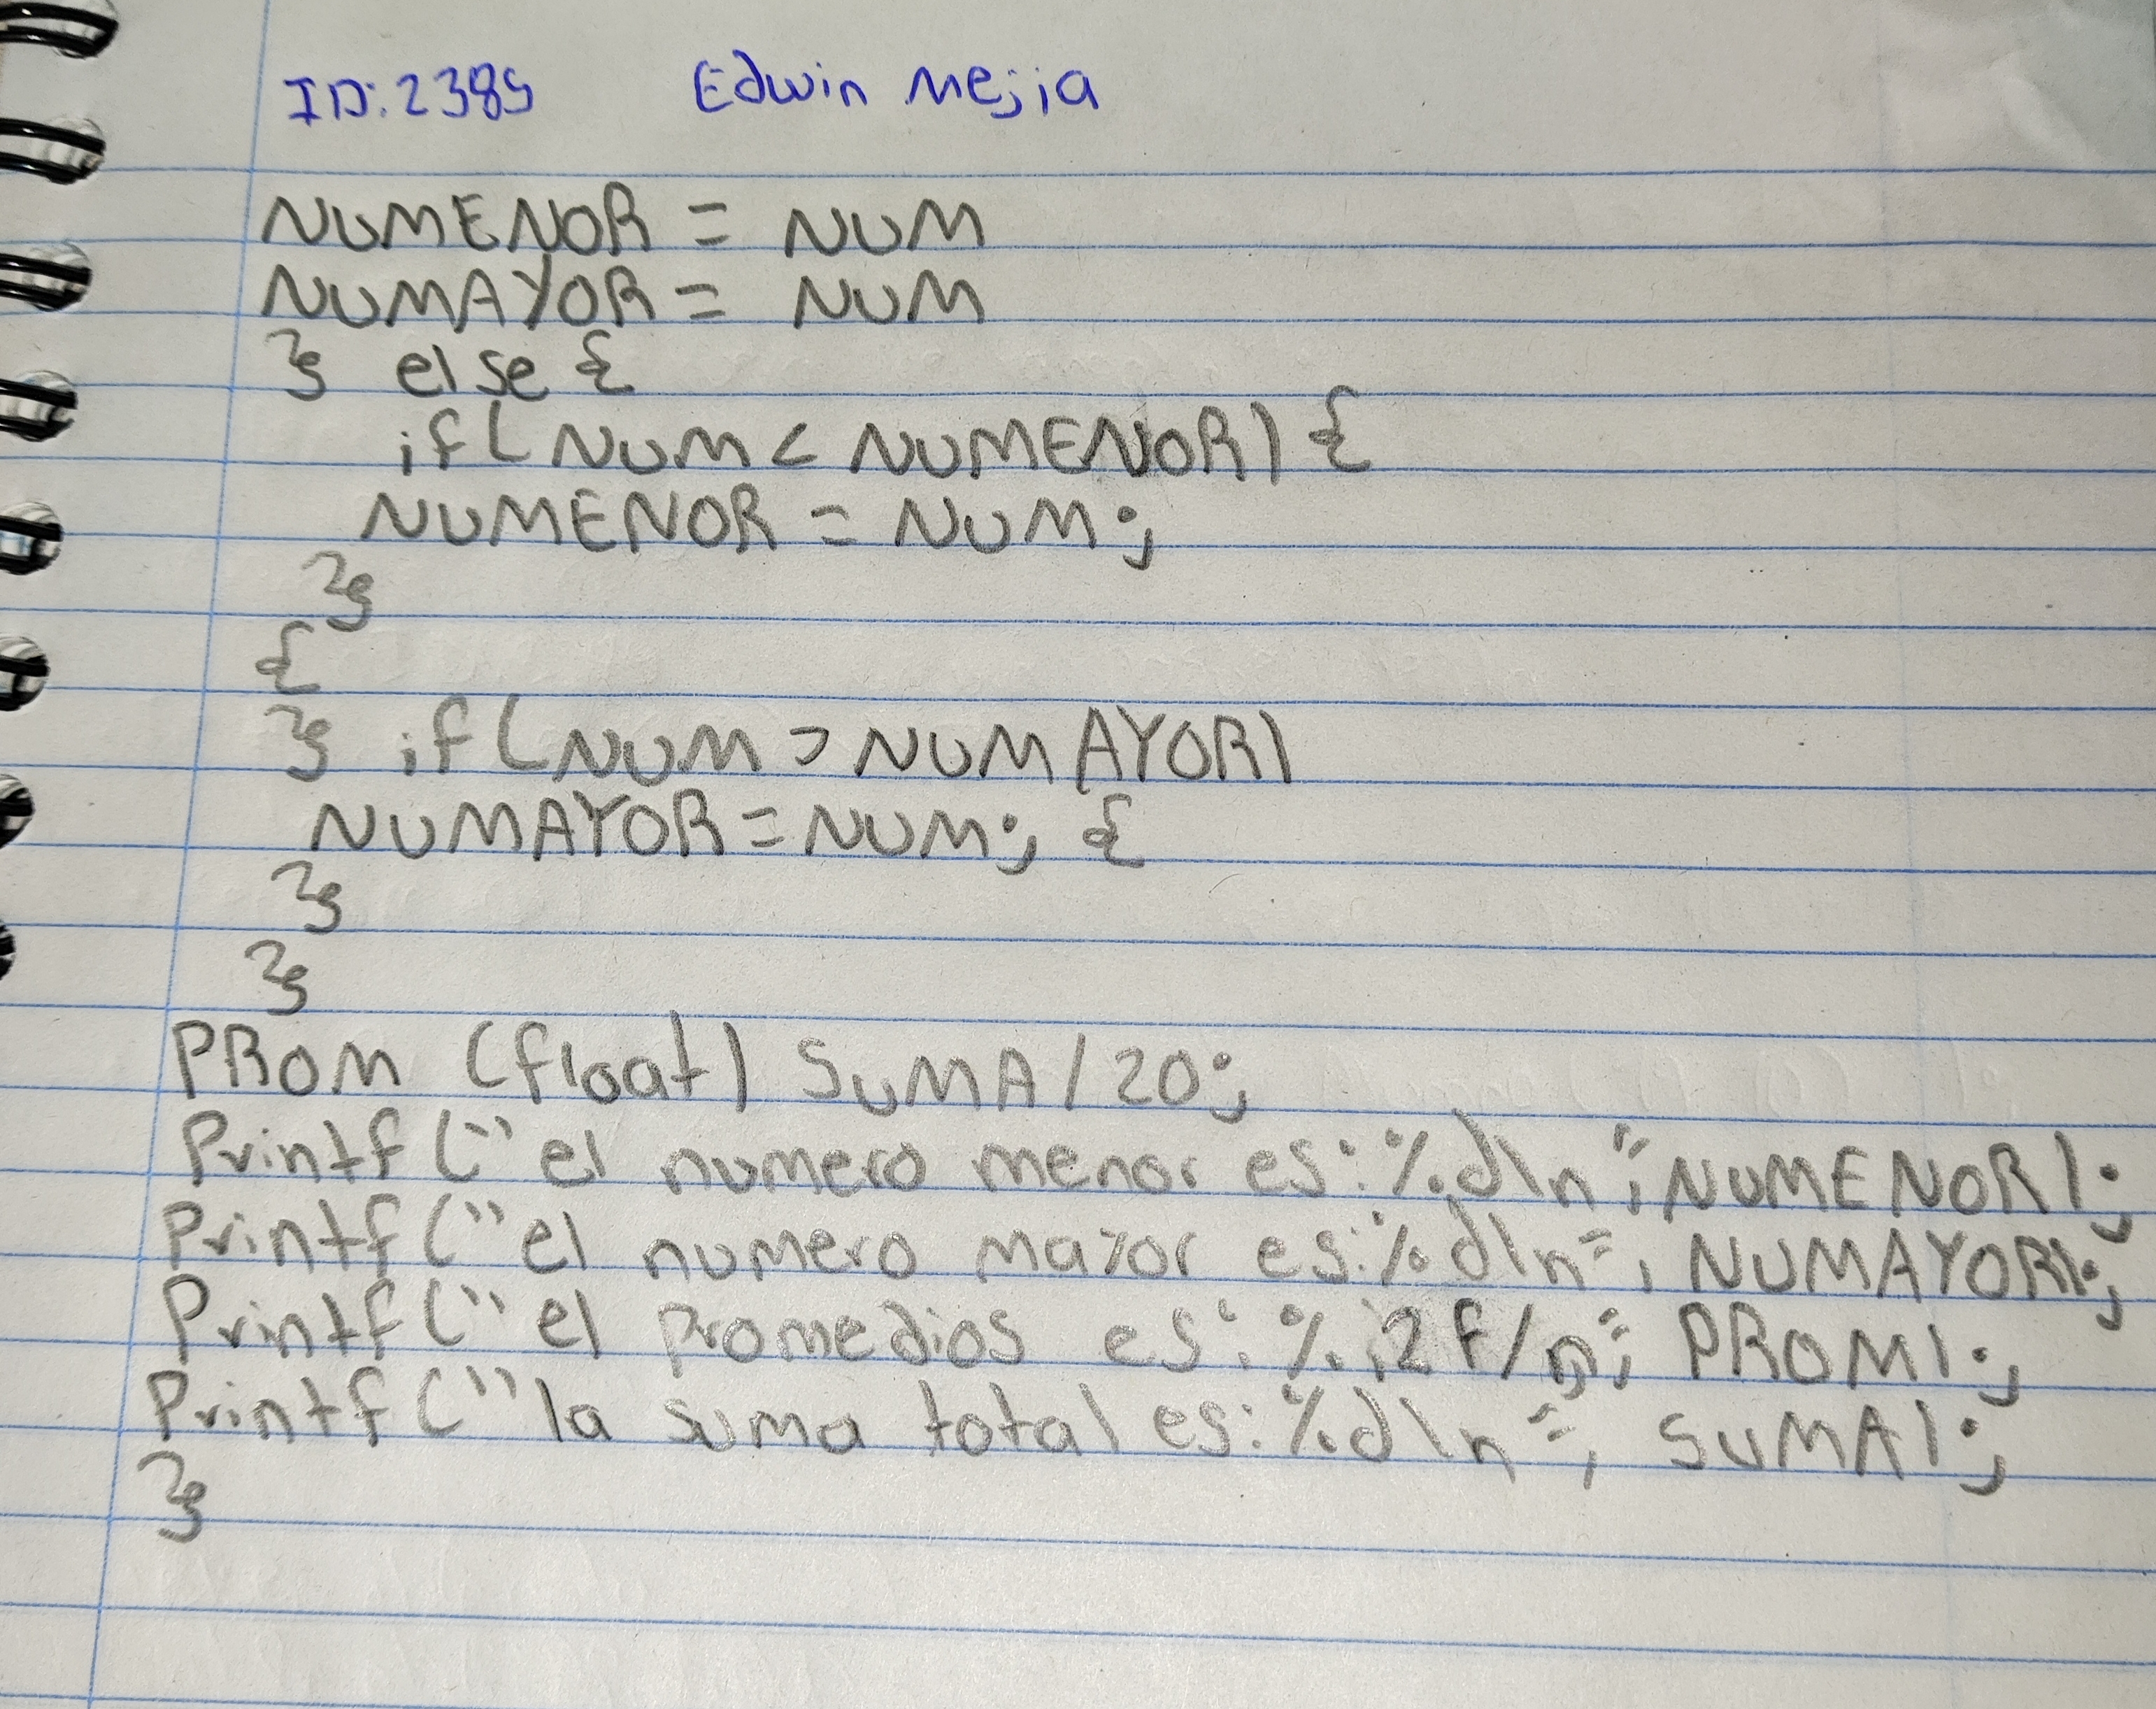 ID: 2389 Edwin Mejia
NUMENOR = NUM
NUMAYOR = NUM
} else {
if ( NUM < NUMENOR) {
NUMENOR = NUM;
}
{
} if ( NUM > NUMAYOR)
NUMAYOR = NUM; {
}
}
PROM (float) SUMA / 20;
Printf ("el numero menor es: %d\n", NUMENOR);
Printf ("el numero mayor es: %d\n", NUMAYOR);
Printf ("el Promedios es: %.2f/n", PROM);
Printf ("la suma total es: %d\n", SUMA);
}